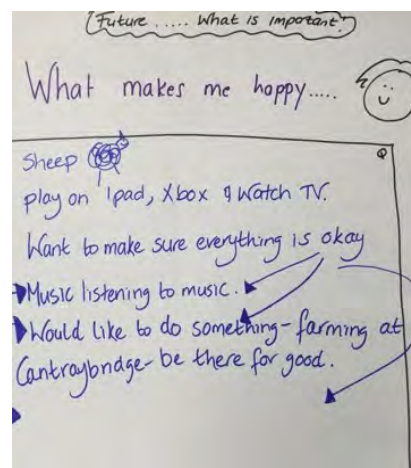 Future ..... What is important?
What makes me happy.....
Sheep
play on Ipad, Xbox & Watch TV.
Want to make sure everything is okay
Music listening to music.
Would like to do something - farming at
Cantraybridge - be there for good.